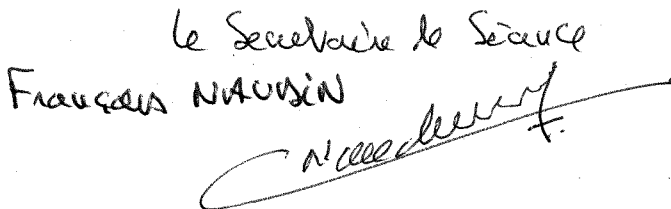 Le Secrétaire de Séance
François NAUDIN